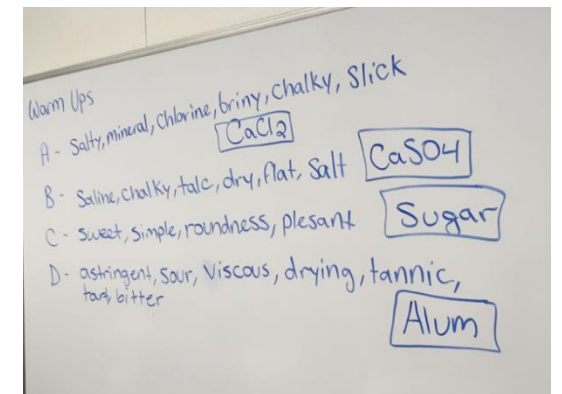 Warm Ups
A - Salty, mineral, Chlorine, briny, Chalky, Slick
CaCl2
B - Saline, chalky, talc, dry, flat, Salt CaSO4
C - Sweet, Simple, roundness, plesant Sugar
D - astringent, Sour, Viscous, drying, tannic,
tart, bitter
Alum